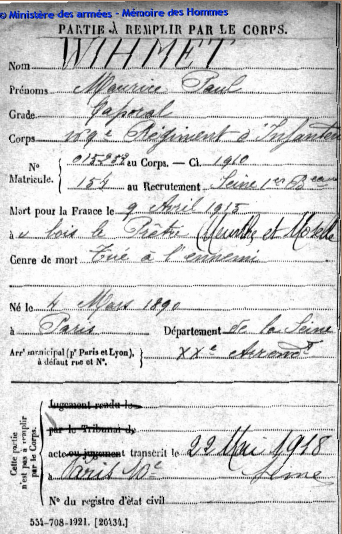 © Ministère des armées - Mémoire des Hommes
PARTIE À REMPLIR PAR LE CORPS.
Nom WIHMET
Prénoms Maurice Paul
Grade Caporal
Corps Régiment d'Infanterie
N° Matricule. au Corps. — Cl. 1910
154 au Recrutement Seine 1er Bureau
Mort pour la France le 9 Avril 1915
à bois le Prêtre (Meurthe et Moselle
Genre de mort Tué à l'ennemi
Né le 4 Mars 1890
à Paris Département de la Seine
Arrt municipal (pr Paris et Lyon), à défaut rue et N°. XXe Arrondt
Cette partie n'est pas à remplir par le Corps.
Jugement rendu le
par le Tribunal de
acte ou jugement transcrit le 22 Mai 1918
à Paris Seine
N° du registre d'état civil
534-708-1921. [26434.]